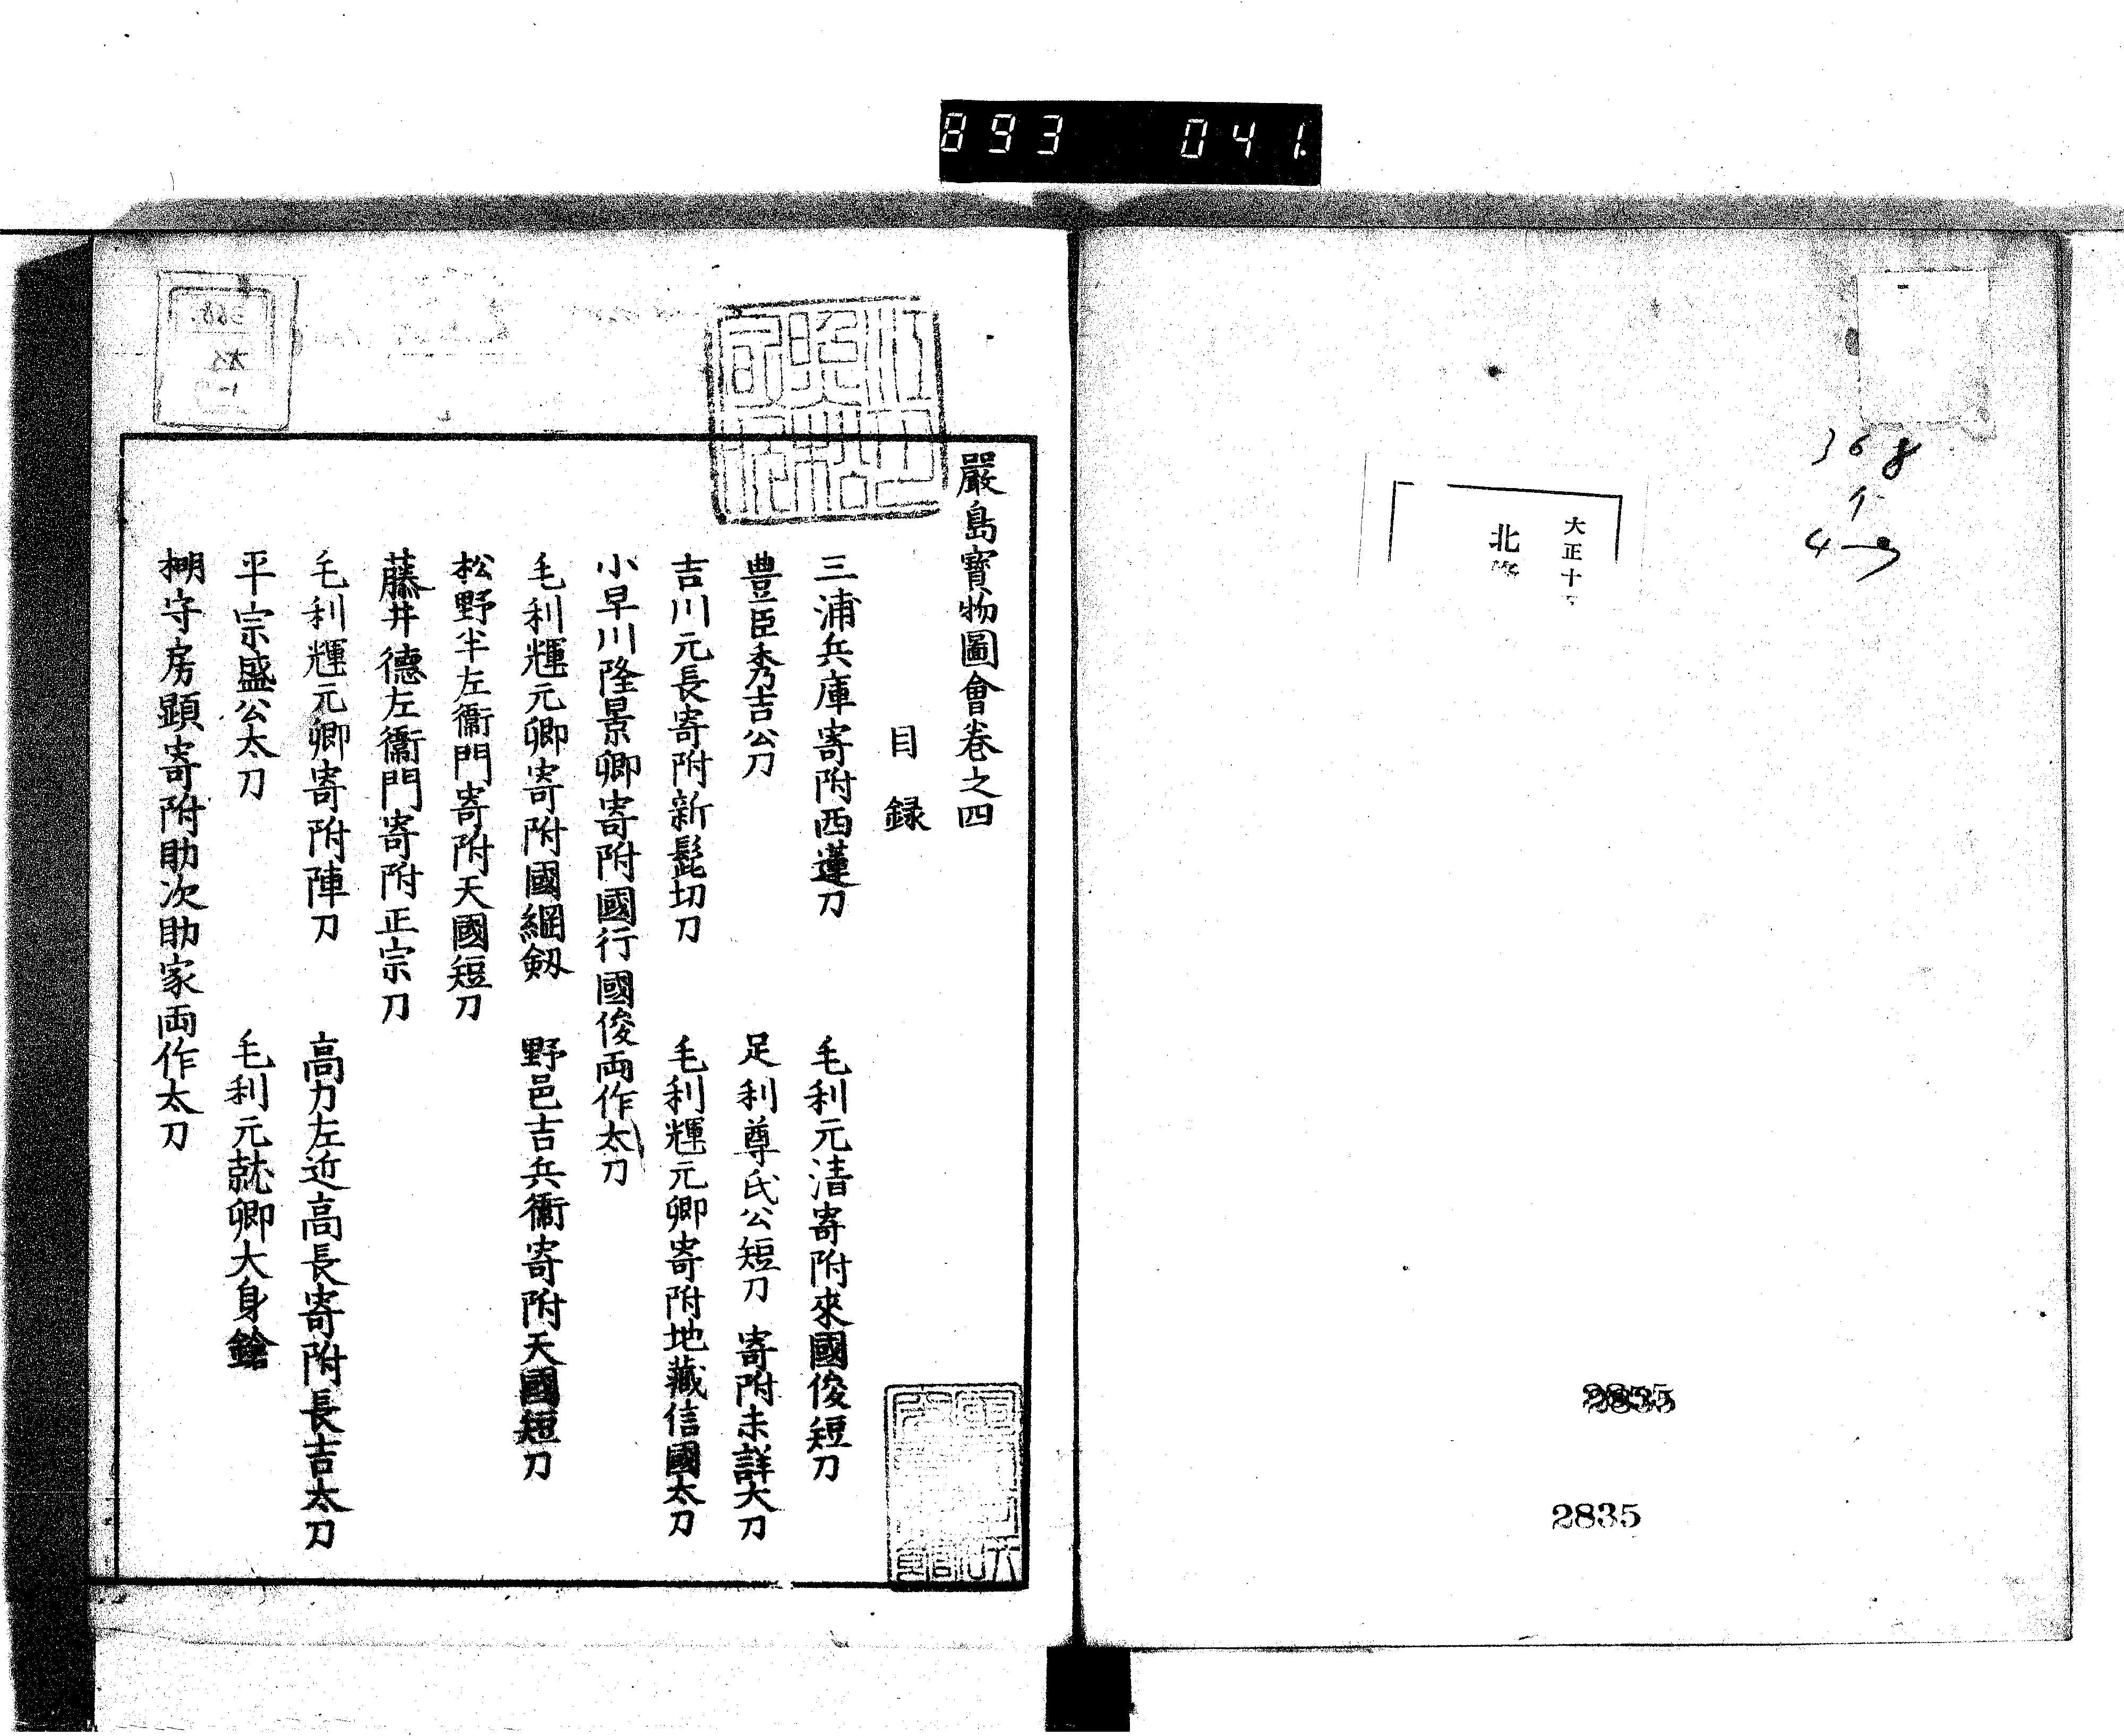 893 041.
368
大正十
北
2835
2835
嚴島寶物圖會卷之四
目録
三浦兵庫寄附西蓮刀
毛利元清寄附來國俊短刀
豊臣秀吉公刀
足利尊氏公短刀
寄附未詳大刀
吉川元長寄附新髭切刀
毛利輝元卿寄附地藏信國太刀
小早川隆景卿寄附國行國俊両作太刀
毛利輝元卿寄附國綱剱
野邑吉兵衞寄附天國短刀
松野半左衞門寄附天國短刀
藤井德左衞門寄附正宗刀
毛利輝元卿寄附陣刀
高力左近高長寄附長吉太刀
平宗盛公太刀
毛利元就卿大身鎗
棚守房顕寄附助次助家両作太刀